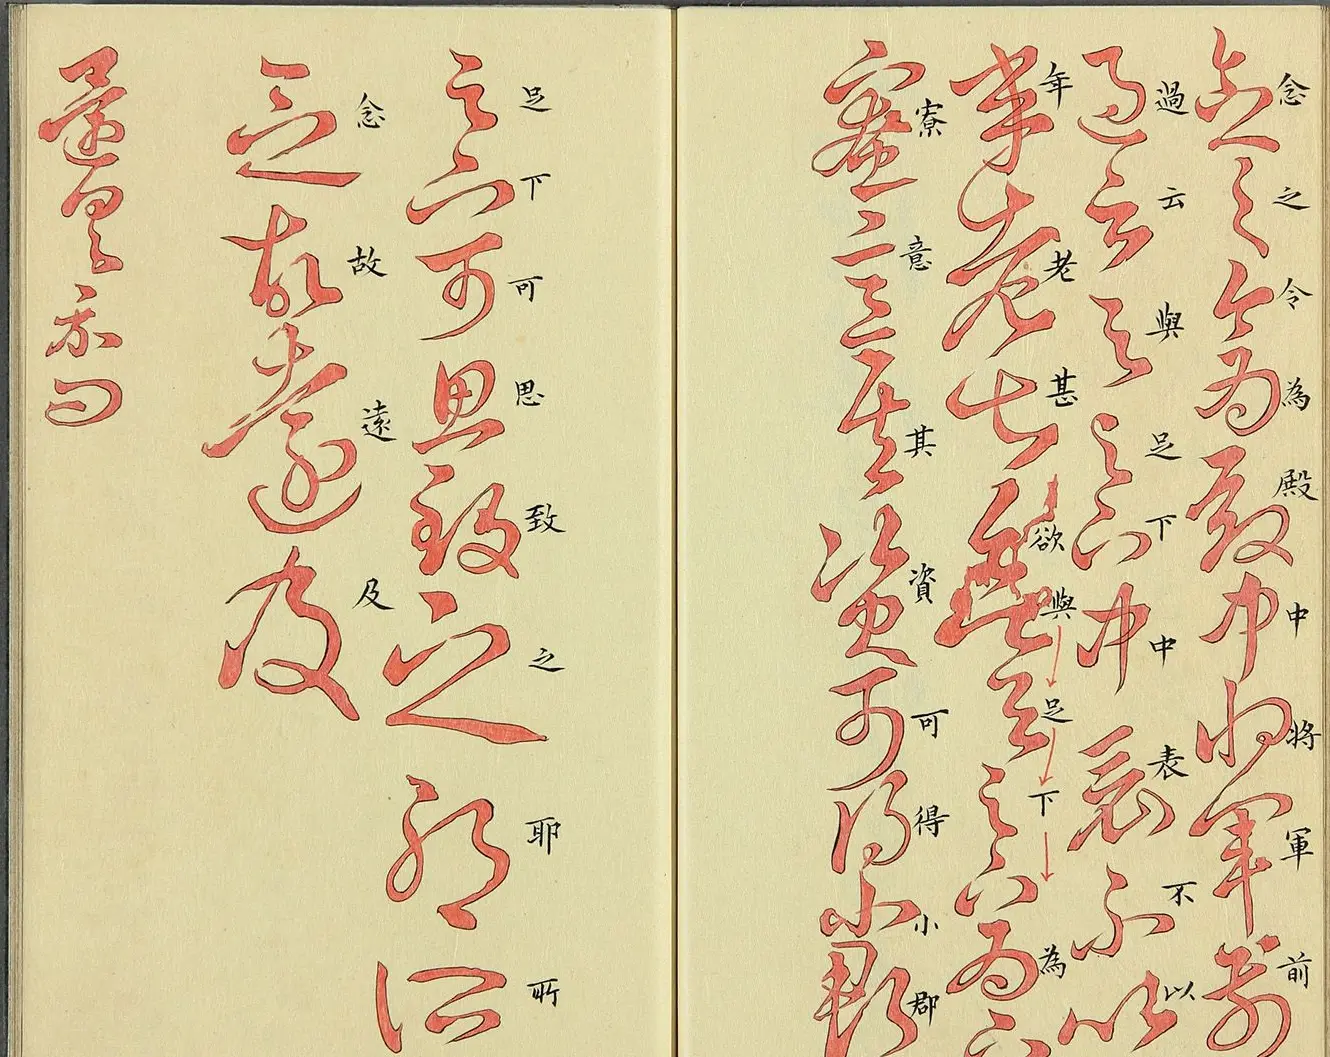 念之令為殿中將軍前
過云與足下中表不以
年老甚欲與足下為
寮意其資可得小郡
足下可思致之耶所
念故遠及
還具示問